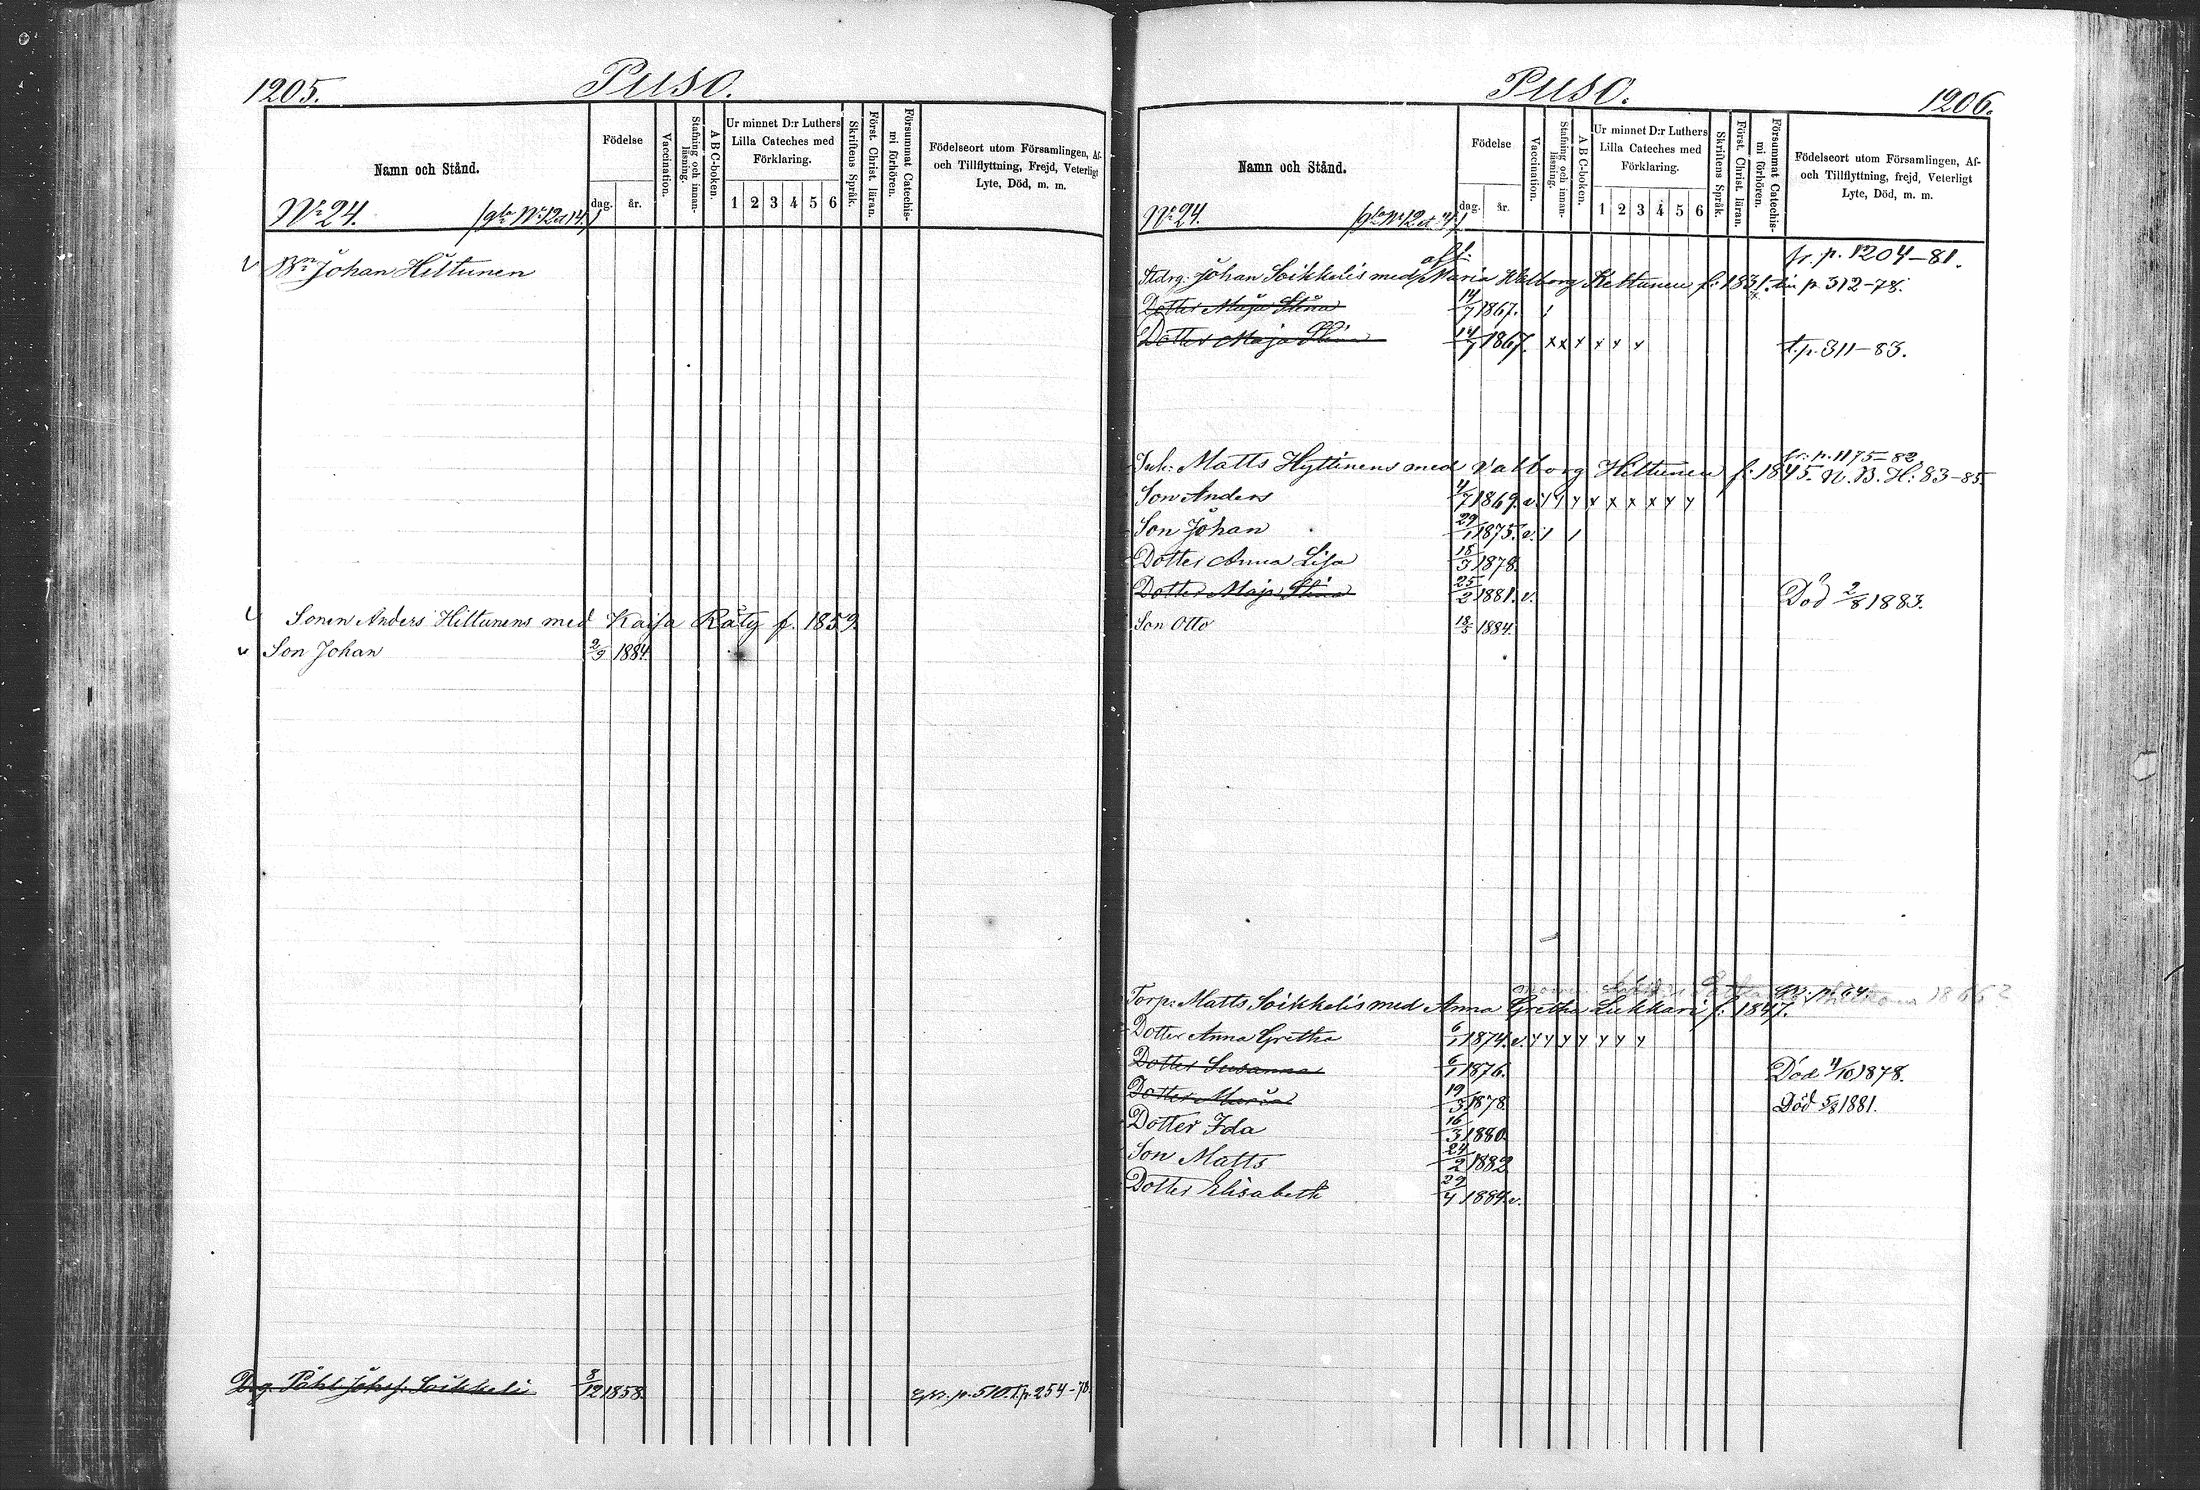 1205. Puso.
Namn och Stånd.
Födelse
dag. år.
Vaccination.
Stafning och innanläsning.
A B C-boken.
Ur minnet D:r Luthers
Lilla Cateches med
Förklaring.
1 2 3 4 5 6
Skriftens Språk.
Först. Christ. läran.
Försummat Catechismi förhören.
Födelseort utom Församlingen, Af-
och Tillflyttning, Frejd, Veterligt
Lyte, Död, m. m.
No 24. No 12 et 14.
Bn Johan Hiltunen
Sonen Anders Hiltunens med Kaisa Räty f. 1859.
Son Johan 2/9 1884.
Drg. Påhl Johsf. Soikkeli 8/12 1858. p. 510. T.p. 254-78.
Puso. 1206.
Namn och Stånd.
Födelse
dag. år.
Vaccination.
Stafning och innanläsning.
A B C-boken.
Ur minnet D:r Luthers
Lilla Cateches med
Förklaring.
1 2 3 4 5 6
Skriftens Språk.
Först. Christ. läran.
Försummat Catechismi förhören.
Födelseort utom Församlingen, Af-
och Tillflyttning, frejd, Veterligt
Lyte, Död, m. m.
No 24. No 12 et 14.
fr. p. 1204-81.
Johan Soikkelis med Maria Walborg Kettunen f. 1831. p. 312-78.
Dotter Maja Stina 14/7 1867.
Dotter Maja Stina 14/7 1867. x x x x x x t.p. 311-83.
fr. p. 1175-82.
Inh: Matts Hyttinens med Valborg Hiltunen f. 1845. N.B. H: 83-85
Son Anders 4/7 1869. v. y y y x x x x y y
Son Johan 29/1 1875. v. 1 1
Dotter Anna Lisa 15/3 1878.
Dotter Maja Stina 25/2 1881. v. Död 2/8 1883.
Son Otto 18/5 1884.
Torp: Matts Soikkelis med Anna Gretha Lukkari f. 1847.
Dotter Anna Gretha 6/1 1874. v. y y y y y y y
Dotter Susanna 6/1 1876. Död 4/10 1878.
Dotter Maria 19/3 1878. Död 5/8 1881.
Dotter Ida 16/3 1880.
Son Matts 24/2 1882
Dotter Elisabeth 29/4 1884. v.